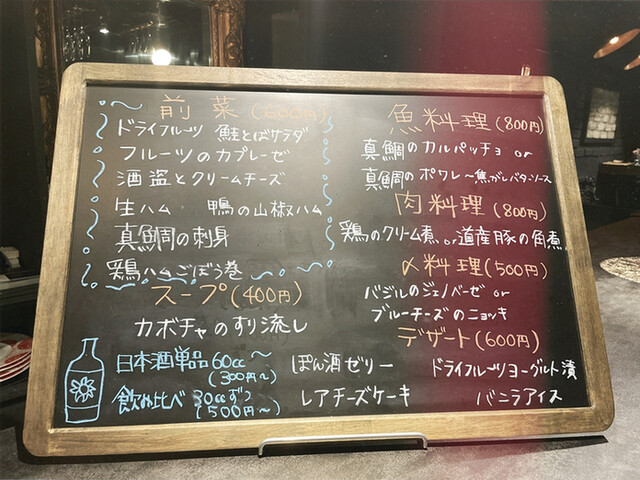 前菜(600円)
ドライフルーツ 鮭とばサラダ
フルーツのカプレーゼ
酒盗とクリームチーズ
生ハム 鴨の山椒ハム
真鯛の刺身
鶏ハムごぼう巻
スープ(400円)
カボチャのすり流し
日本酒単品60cc〜
(300円〜)
飲み比べ 30ccずつ
(500円〜)
魚料理(800円)
真鯛のカルパッチョ or
真鯛のポワレ〜焦がしバターソース
肉料理(800円)
鶏のクリーム煮 or 道産豚の角煮
〆料理(500円)
バジルのジェノベーゼ or
ブルーチーズのニョッキ
デザート(600円)
ぽん酒ゼリー ドライフルーツヨーグルト漬
レアチーズケーキ バニラアイス